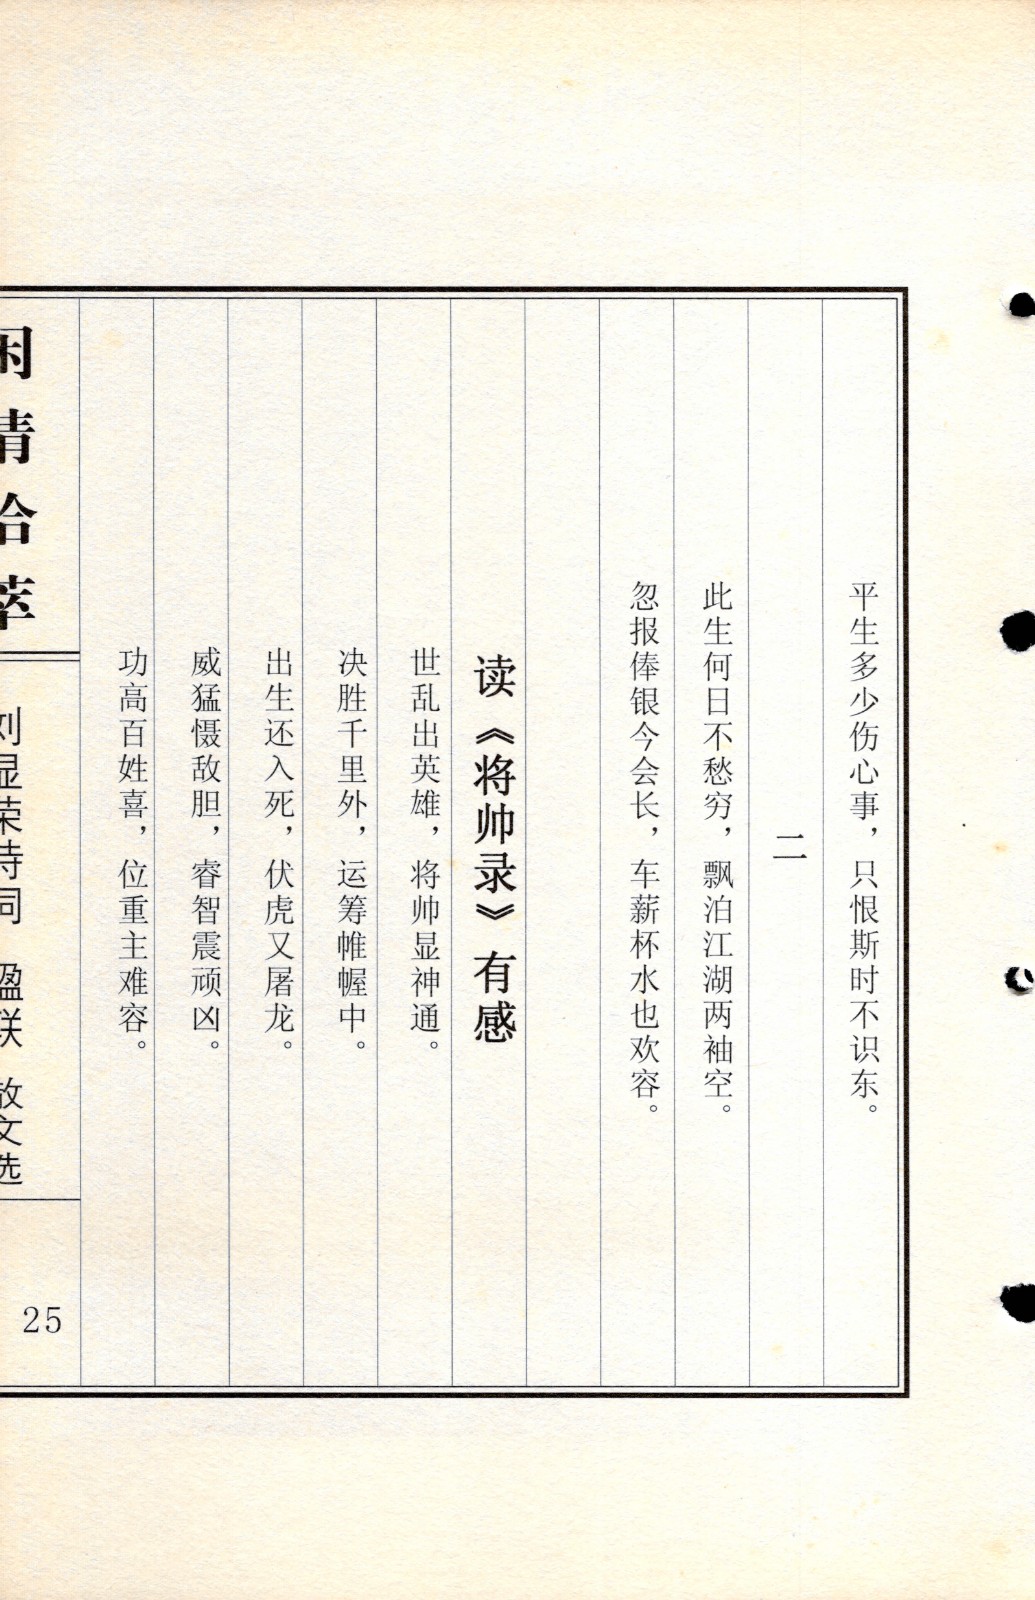 平生多少伤心事，只恨斯时不识东。
二
此生何日不愁穷，飘泊江湖两袖空。
忽报俸银今会长，车薪杯水也欢容。
读《将帅录》有感
世乱出英雄，将帅显神通。
决胜千里外，运筹帷幄中。
出生还入死，伏虎又屠龙。
威猛慑敌胆，睿智震顽凶。
功高百姓喜，位重主难容。
情拾萃
刘显荣诗词 盈联 散文选
25